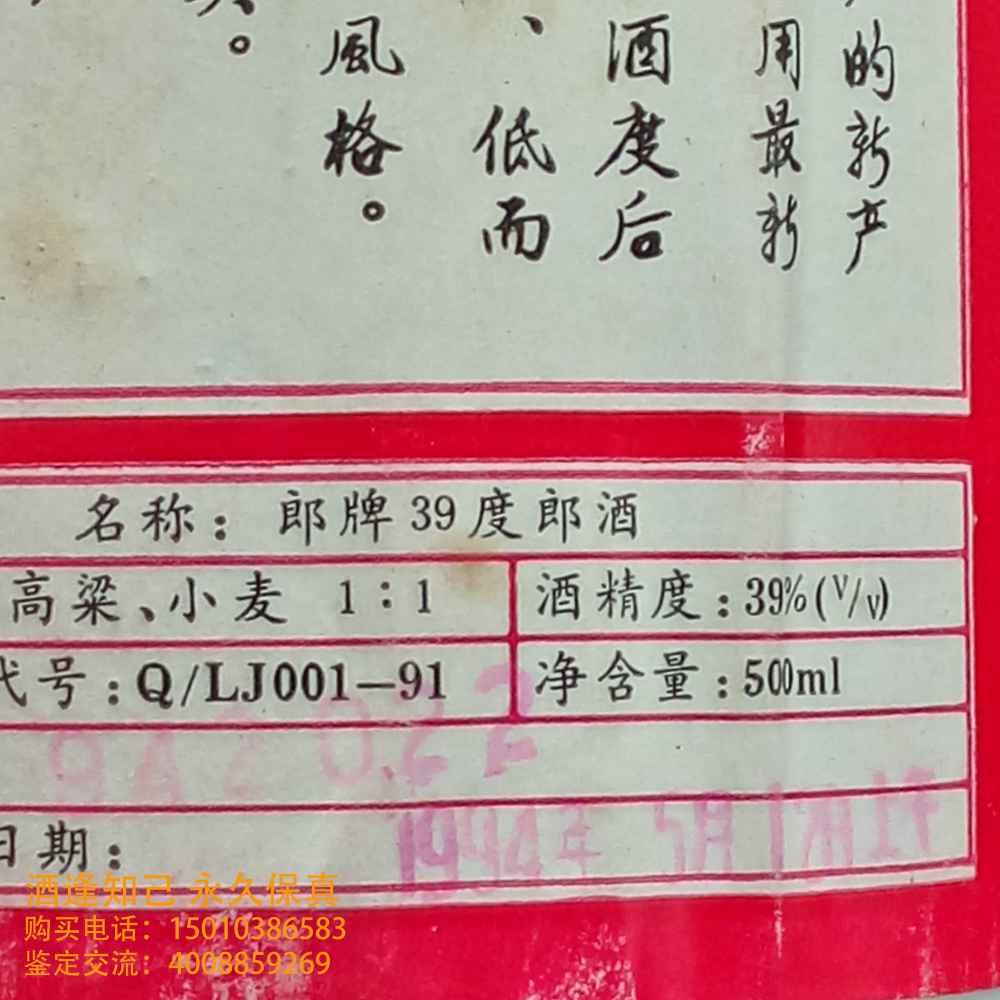 的新产
用最新
酒度后
、低而
風格。
。
名称：郎牌39度郎酒
高粱、小麦 1：1
酒精度：39%(V/v)
代号：Q/LJ001-91
净含量：500ml
日期：
1994年5月1
酒逢知己 永久保真
购买电话：15010386583
鉴定交流：4008859269